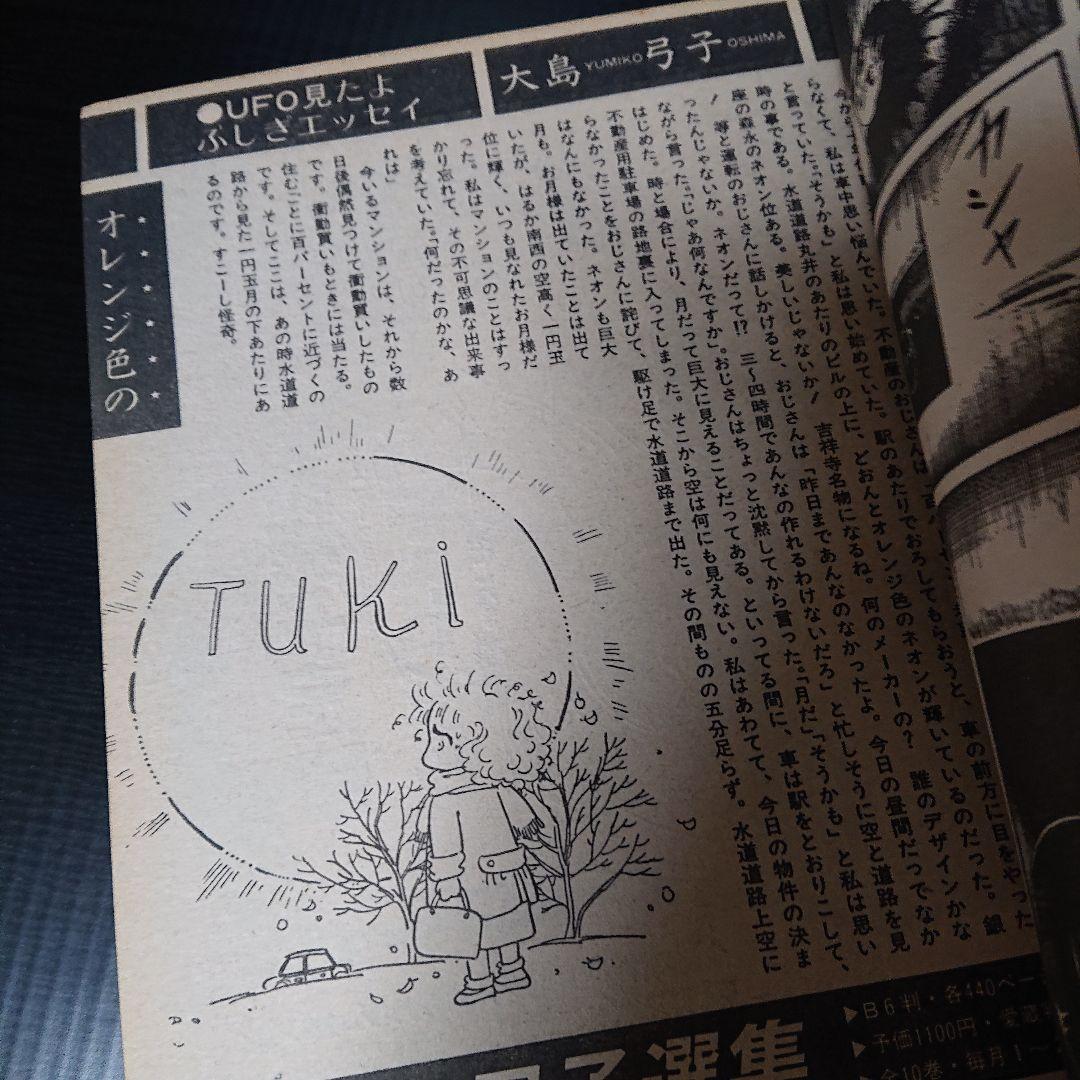 ●UFO見たよ
ふしぎエッセイ
大島弓子
YUMIKO OSHIMA
オレンジ色の
らなくて、私は車中思い悩んでいた。不動産のおじさんは
と言っていた。「そうかも」と私は思い始めていた。駅のあたりでおろしてもらおうと、車の前方に目をやった
時の事である。水道道路丸井のあたりのビルの上に、どおんとオレンジ色のネオンが輝いているのだった。銀
座の森永のネオン位ある。美しいじゃないか！　吉祥寺名物になるね。何のメーカーの？　誰のデザインかな
！　等と運転のおじさんに話しかけると、おじさんは「昨日まであんなのなかったよ。今日の昼間だってなか
ったんじゃないか。ネオンだって!?　三〜四時間であんなの作れるわけないだろ」と忙しそうに空と道路を見
ながら言った。「じゃあ何なんですか」。おじさんはちょっと沈黙してから言った。「月だ」「そうかも」と私は思い
はじめた。時と場合により、月だって巨大に見えることだってある。といってる間に、車は駅をとおりこして、
不動産用駐車場の路地裏に入ってしまった。そこから空は何にも見えない。私はあわてて、今日の物件の決ま
らなかったことをおじさんに詫びて、駆け足で水道道路まで出た。その間ものの五分足らず。水道道路上空に
はなんにもなかった。ネオンも巨大
月も。お月様は出ていたことは出て
いたが、はるか南西の空高く一円玉
位に輝く、いつも見なれたお月様だ
った。私はマンションのことはすっ
かり忘れて、その不可思議な出来事
を考えていた。「何だったのかな、あ
れは」
今いるマンションは、それから数
日後偶然見つけて衝動買いしたもの
です。衝動買いもときには当たる。
住むごとに百パーセントに近づくの
です。そしてここは、あの時水道道
路から見た一円玉月の下あたりにあ
るのです。すこーし怪奇。
TUKi
ガシャ
選集
▶B6判・各440ペー
▶予価1100円・愛蔵
▶全10巻・毎月1